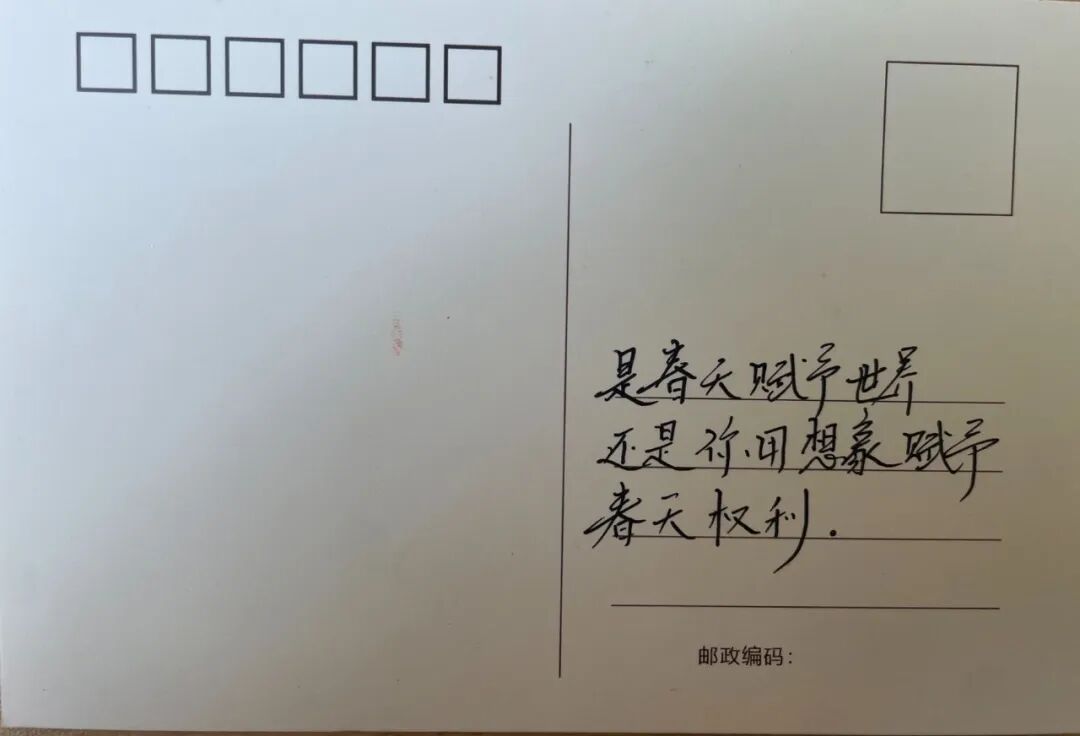 是春天赋予世界
还是你用想象赋予
春天权利.
邮政编码：